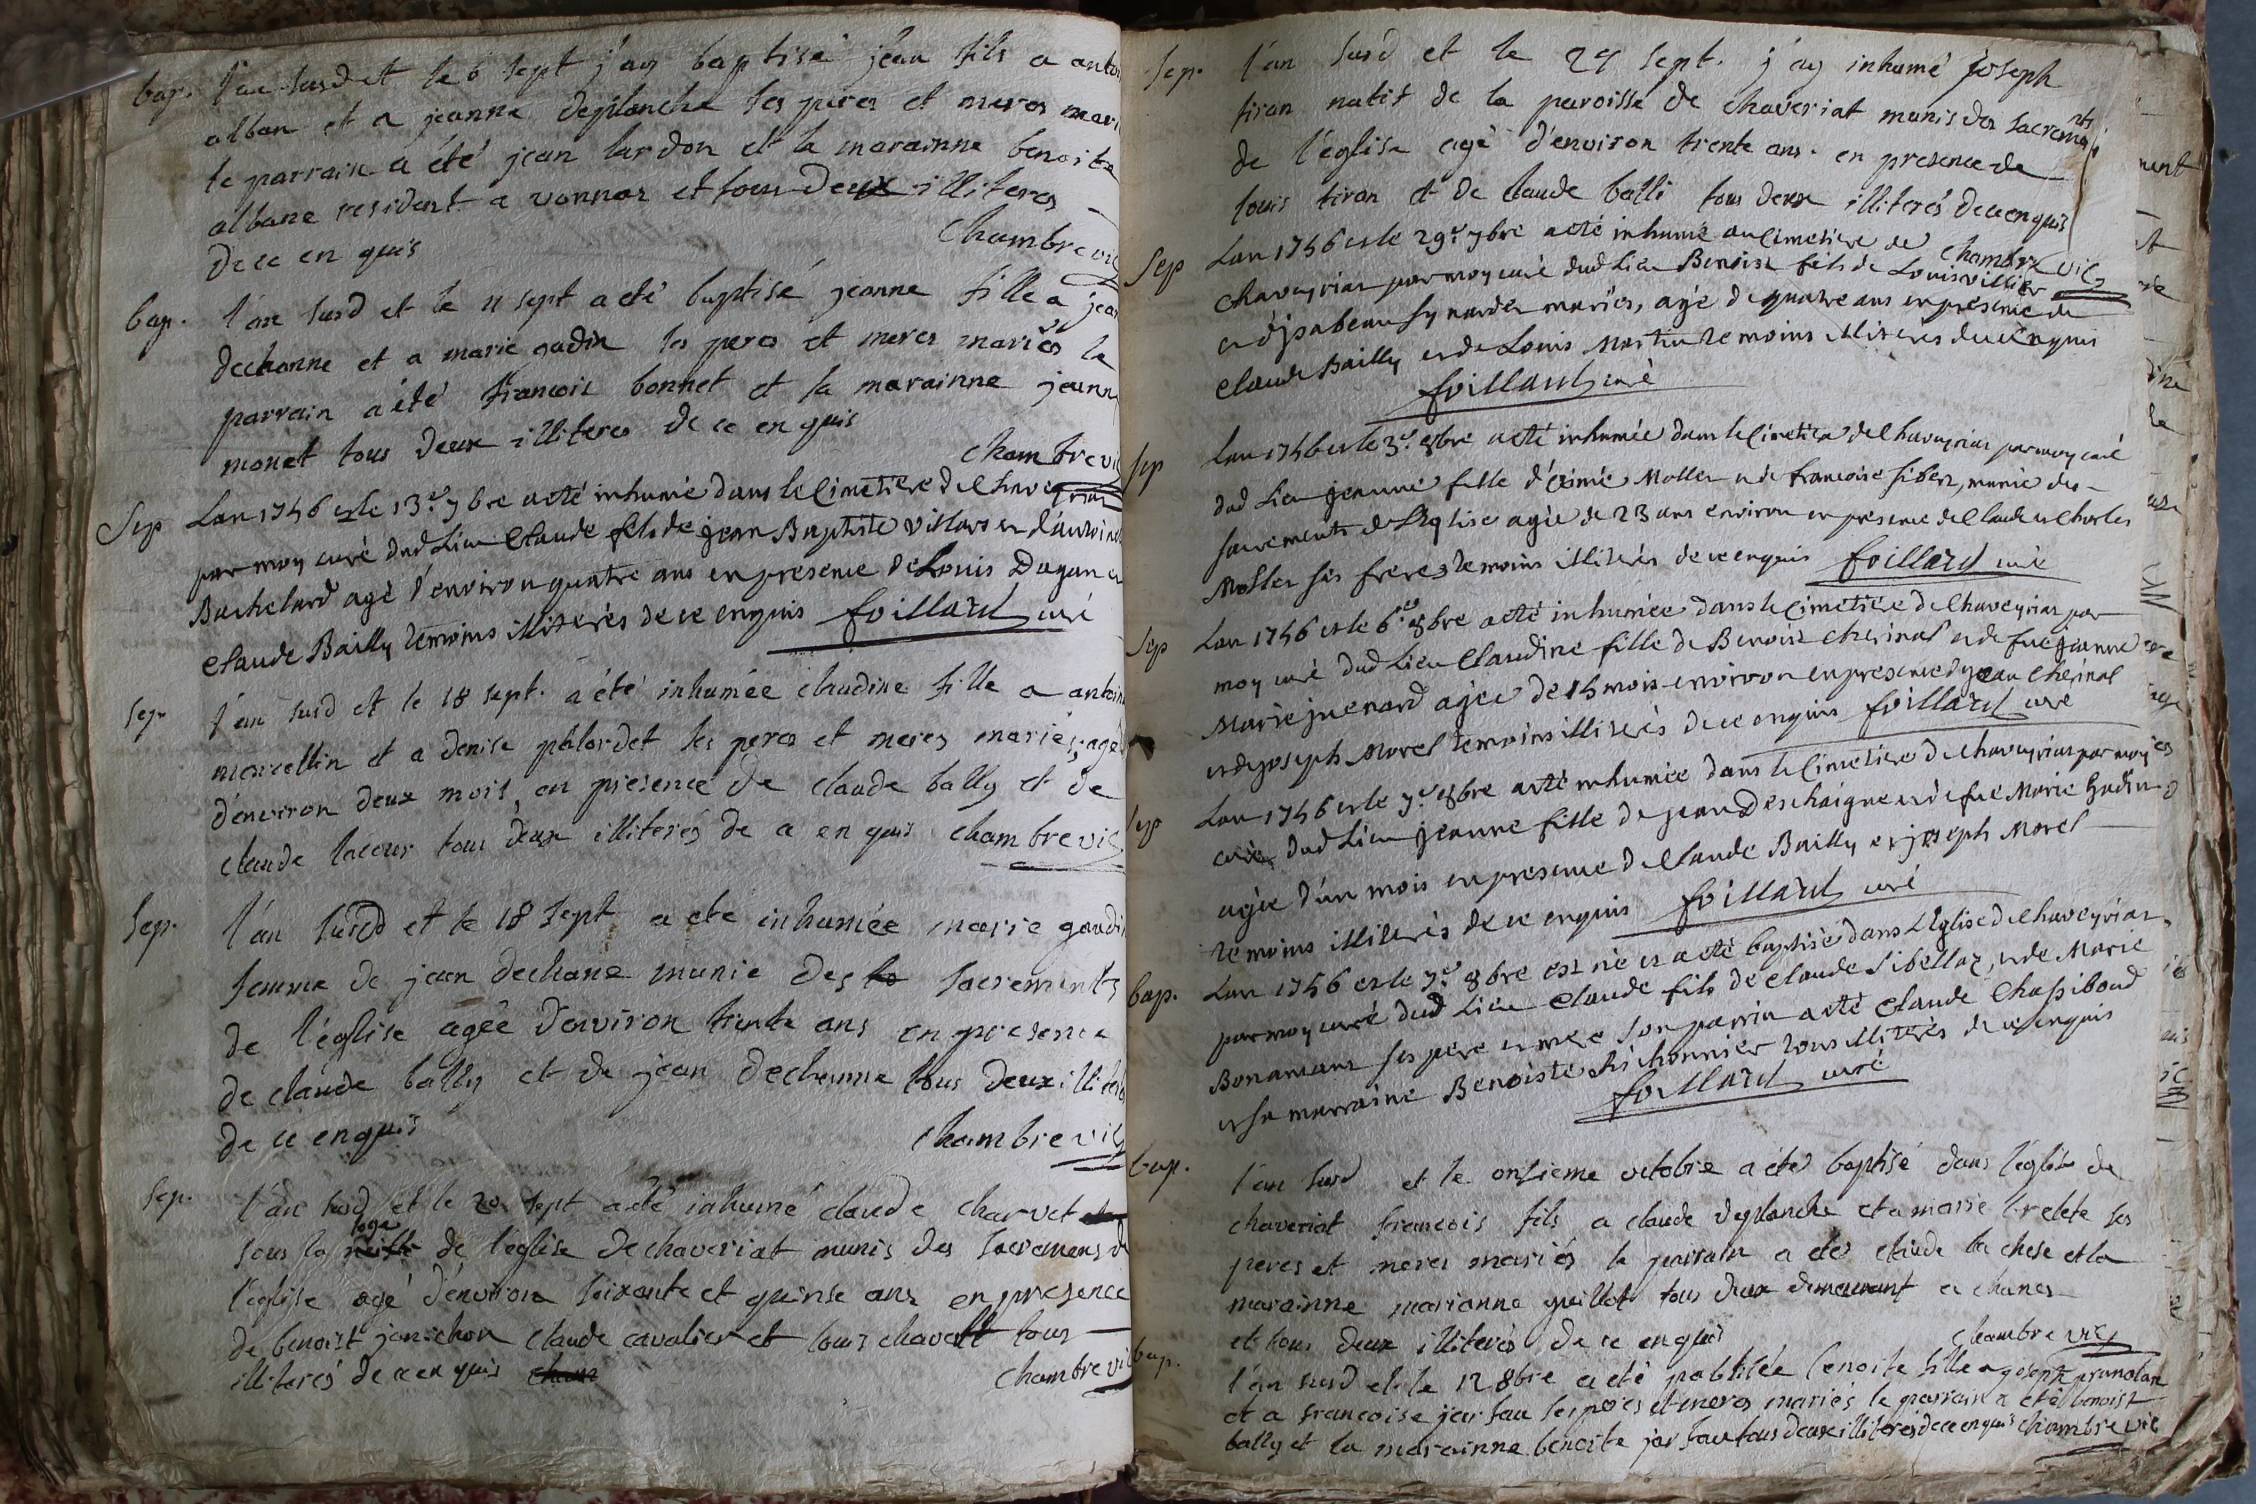 bap. l'an susd et le 6 sept j'ay baptisé jean fils a anto
alban et a jeanne deplanche ses peres et meres mari
le parrain a été jean lardon et la marainne benoite
albane resident a vonnas et tous deux illiteres
de ce en quis chambre vic
bap. l'an susd et le 11 sept a eté baptisé jeanne fille a jean
dechanne et a marie gadin ses peres et meres mariés le
parrain a été francois bonnet et la marainne jeann
monet tous deux illiteres de ce en quis
chambre vic
Sep Lan 1746 et le 13e 7bre a eté inhumé dans le Cimetiere de Chaveyriat
par moy curé dud Lieu Claude fils de jean Baptiste Villars et d'antoine
Bachelard agé d'environ quatre ans en presence de Louis Dagan et
Claude Bailly temoins illiterés de ce enquis foillard curé
sep. l'an susd et le 18 sept. a été inhumée claudine fille a antoin
mercellin et a denise palordet ses peres et meres mariés, agé
d'environ deux mois, en presence de claude bally et de
claude lacour tous deux illiterés de ce en quis chambre vic
Sep. l'an susd et le 18 sept a eté inhumée marie gaudi
femme de jean dechane munie des sacrements
de l'église agée d'environ trente ans en presence
de claude bally et de jean dechanne tous deux illitere
de ce enquis chambre vic
Sep. l'an susd et le 20 sept a eté inhumé claude charvet
sous la loge de l'eglise de chaveriat munis des sacremens de
l'eglise agé d'environ soixante et quinse ans en presence
de benoist janichon claude cavalier et louis chavett tous
illiterés de ce en quis chambre vic
sep. l'an susd et le 24 sept. j'ay inhumé joseph
tiran natif de la paroisse de chaveriat munis des sacrements
de l'église agé d'environ trente ans. en presence de
louis tiran et de claude balli tous deux illiterés de ce enquis
chambre vic
Sep Lan 1746 et le 29e 7bre a eté inhumé au Cimetiere de
Chaveyriat par moy curé dud Lieu Benoist fils de Louis villier
et d'jsabeau Synardet mariés, agé de quatre ans en presence de
Claude Bailly et de Louis Martin temoins illiteres de ce enquis
foillard curé
Sep Lan 1746 et le 3e 8bre a eté inhumée dans le Cimetiere de Chaveyriat par moy curé
dud Lieu jeanne fille d'Eximie Mollet et de francoise sibert, munie des
sacrements de L'Eglise agée de 23 ans environ en presence de Claude et Charles
Mollet ses freres temoins illiterés de ce enquis foillard curé
Sep Lan 1746 et le 6e 8bre a eté inhumée dans le Cimetiere de Chaveyriat par
moy curé dud Lieu Claudine fille de Benoist Cherinal et de fue jeanne
Marie juenard agée de 15 mois environ en presence de jean Cherinal
et de joseph Morel temoins illiterés de ce enquis foillard curé
Sep Lan 1746 et le 7e 8bre a eté inhumée dans le Cimetiere de Chaveyriat par moy
curé dud Lieu jeanne fille de jean Deschaigne et de fue Marie Gadin
agée d'un mois en presence de Claude Bailly et joseph Morel
temoins illiterés de ce enquis foillard curé
bap. Lan 1746 et le 7e 8bre est né et a eté baptisé dans L'Eglise de Chaveyriat
par moy curé dud Lieu Claude fils de Claude Sibellaz, et de Marie
Bonamant ses pere et mere son parrin a eté Claude Chassiboud
et sa marraine Benoiste Bichonnier tous illiterés de ce enquis
foillard curé
bap. l'an susd et le onsieme octobre a été baptisé dans l'église de
chaveriat francois fils a claude deplanche et a marie brelete ses
peres et meres mariés le parrain a eté claude la chese et la
marainne marianne guillot tous deux demeurant a chanes
et tous deux illiterés de ce enquis chambre vic
bap. l'an susd et le 12 8bre a eté babtisée benoite fille a joseph prunolan
et a francoise jarsau ses peres et meres mariés le parrain a eté benoist
bally et la marainne benoite jarsau tous deux illiteres de ce enquis chambre vic